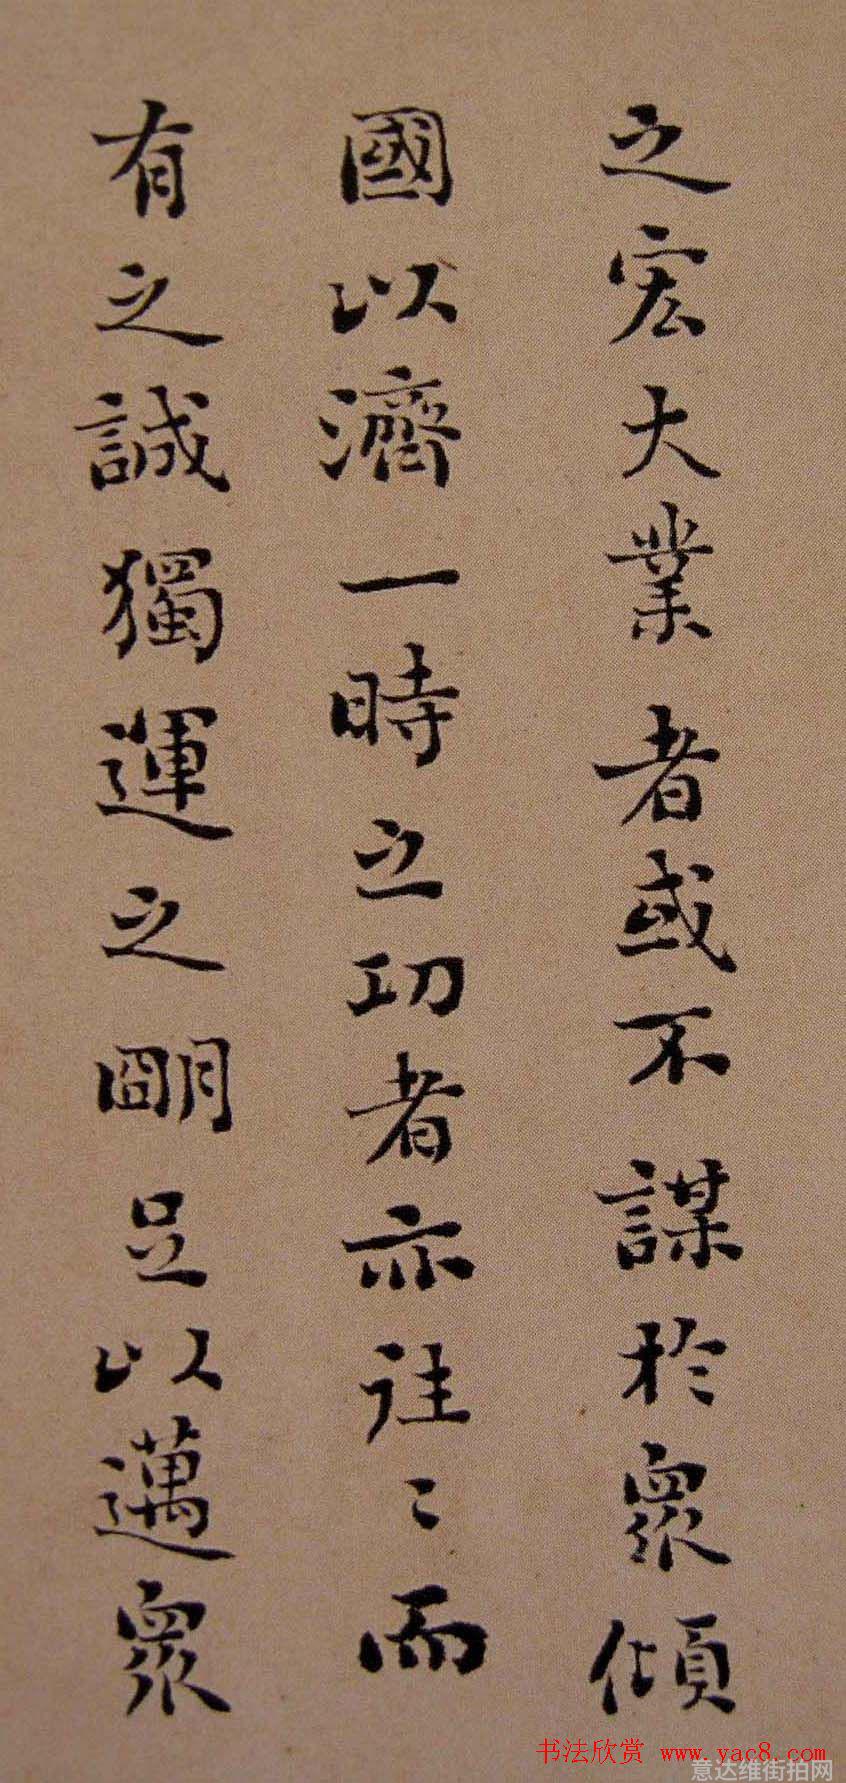 之宏大業者或不謀於眾傾
國以濟一時之功者亦往〻而
有之誠獨運之明足以邁眾
书法欣赏 www.yac8.com
意达维街拍网